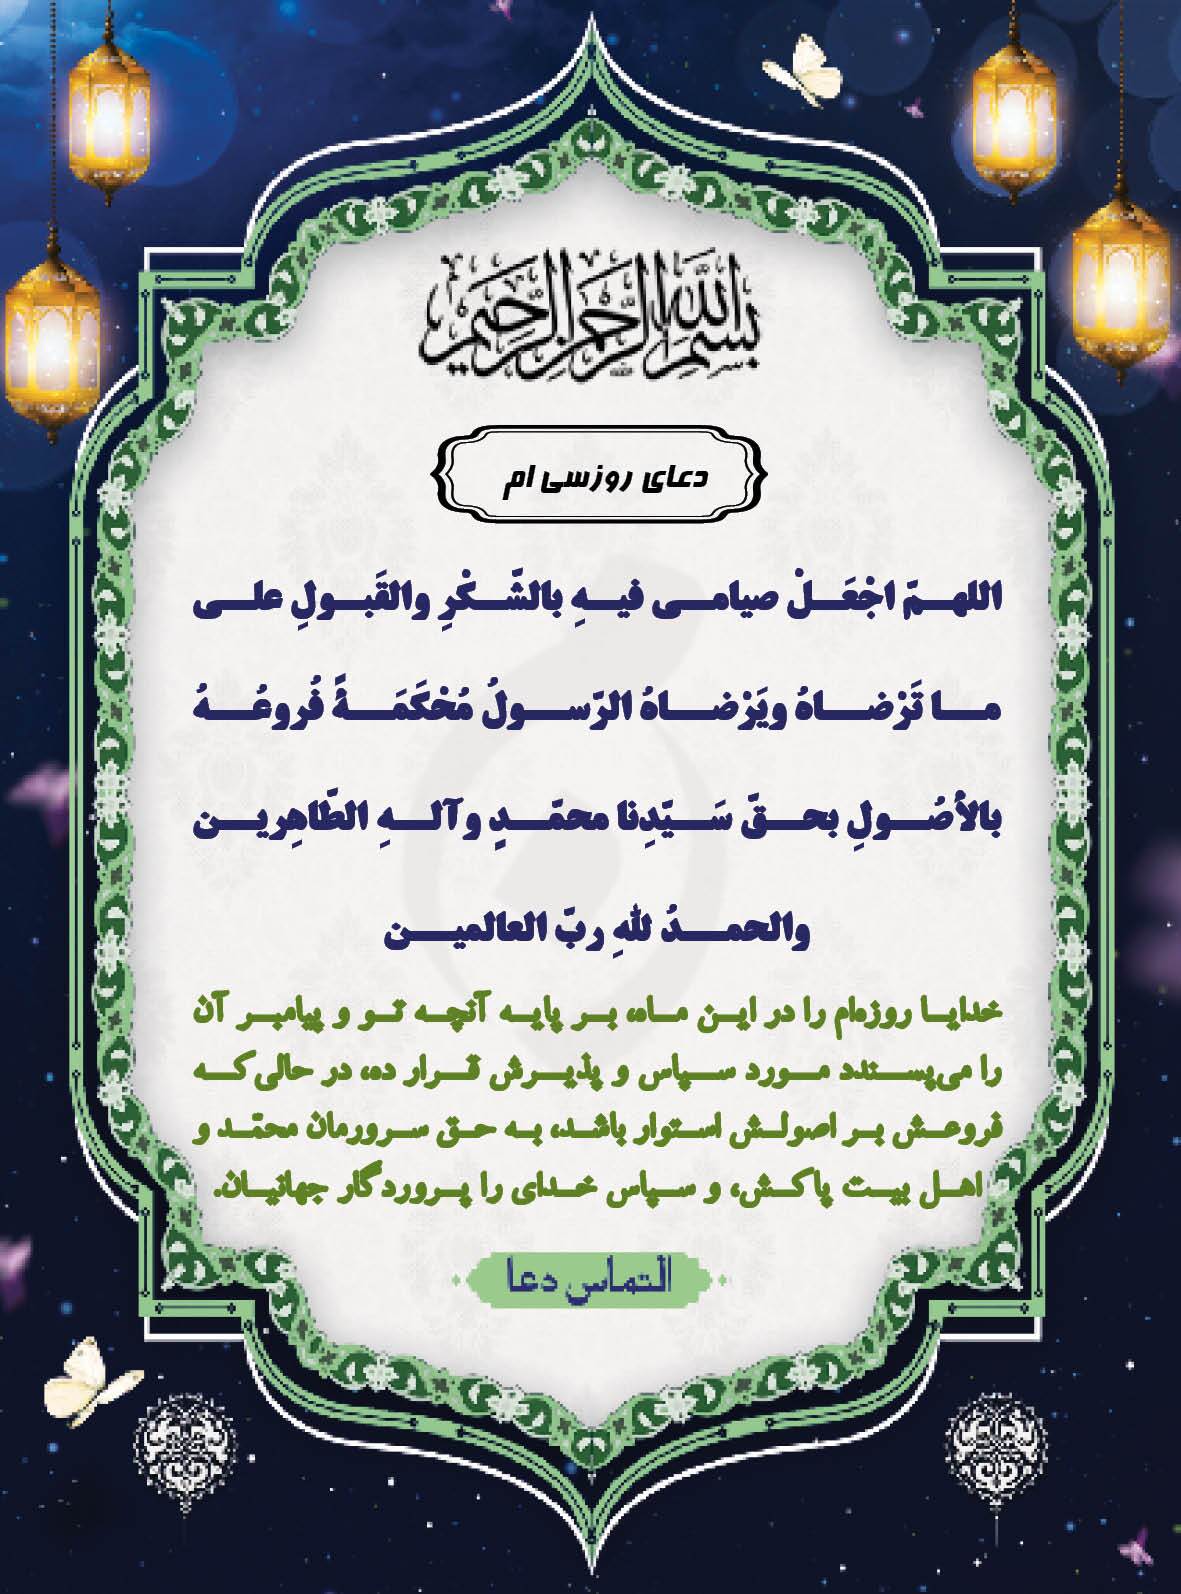 بسم الله الرحمن الرحیم
دعای روزسی ام
اللهمّ اجْعَلْ صیامی فیهِ بالشّکْرِ والقَبولِ علی
ما تَرْضاهُ ویَرْضاهُ الرّسولُ مُحْکَمَةً فُروعُهُ
بالأصُولِ بحقّ سَیّدِنا محمّدٍ وآلهِ الطّاهِرین
والحمدُ للهِ ربّ العالمین
خدایا روزه‌ام را در این ماه، بر پایه آنچه تو و پیامبر آن
را می‌پسندد مورد سپاس و پذیرش قرار ده، در حالی‌که
فروعش بر اصولش استوار باشد، به حق سرورمان محمّد و
اهل بیت پاکش، و سپاس خدای را پروردگار جهانیان.
التماس دعا